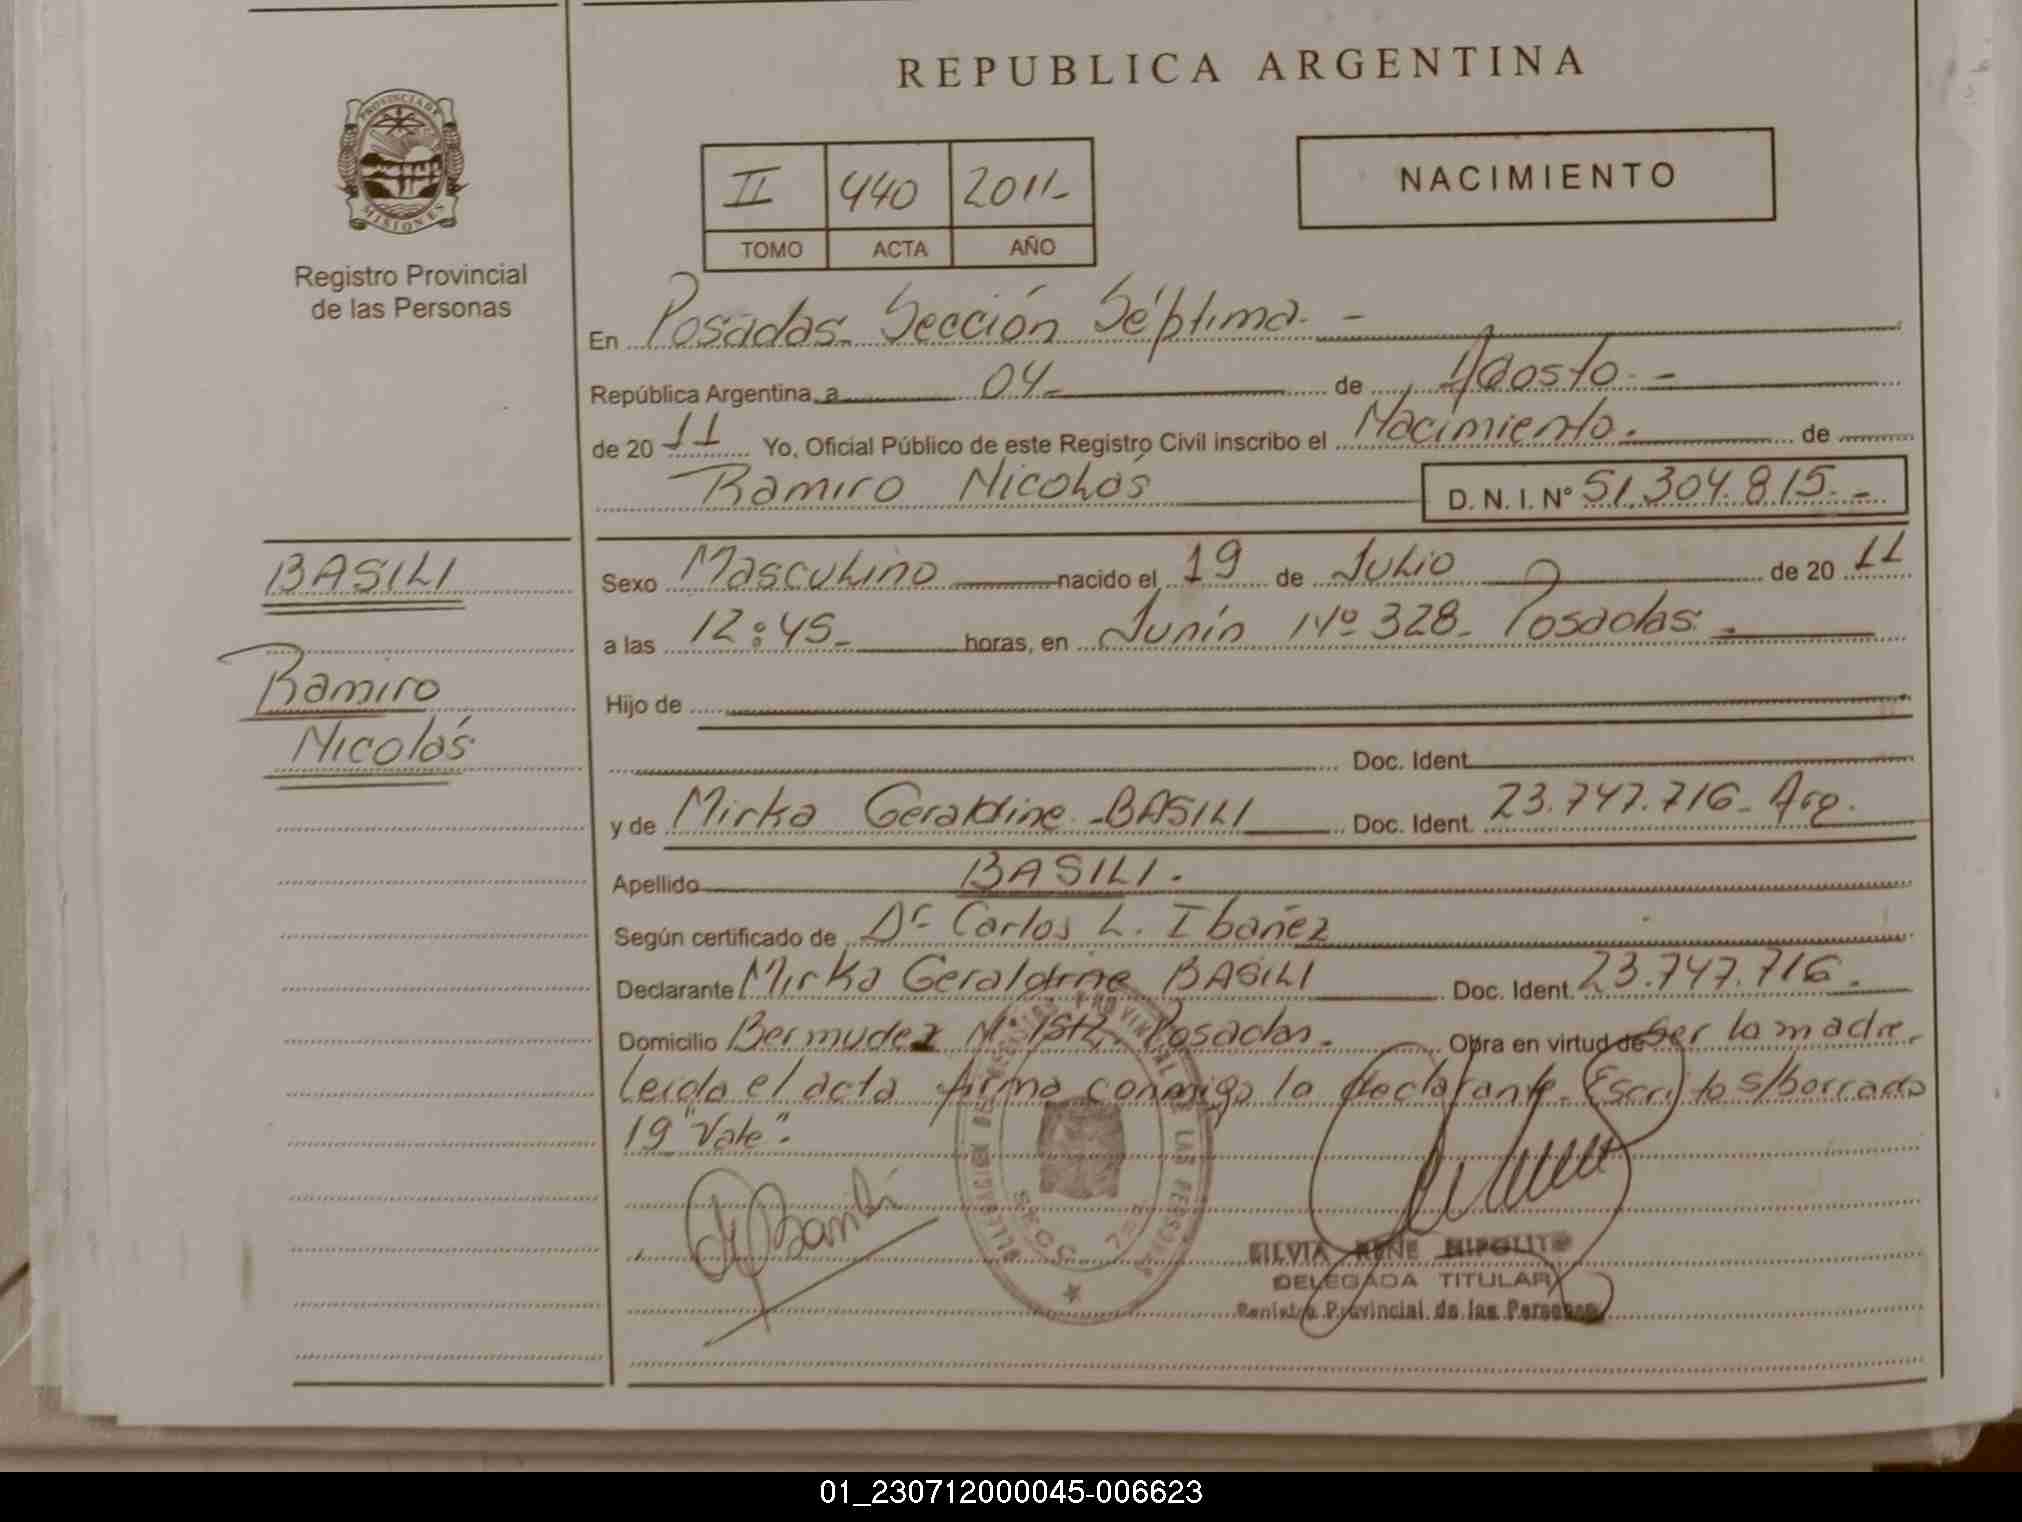 REPUBLICA ARGENTINA
PROVINCIA DE MISIONES
Registro Provincial
de las Personas
II 440 2011-
TOMO ACTA AÑO
NACIMIENTO
En Posadas Sección Séptima. -
República Argentina, a 04- de Agosto. -
de 2011 Yo, Oficial Público de este Registro Civil inscribo el Nacimiento. de
Ramiro Nicolás D. N. I. Nº 51.304.815.-
BASILI
Ramiro
Nicolás
Sexo Masculino nacido el 19 de Julio de 2011
a las 12:45- horas, en Junín Nº 328- Posadas.
Hijo de
Doc. Ident.
y de Mirka Geraldine BASILI Doc. Ident. 23.747.716- Arg.
Apellido BASILI.
Según certificado de Dr Carlos L. Ibañez
Declarante Mirka Geraldine BASILI Doc. Ident. 23.747.716.
Domicilio Bermudez Nº Posadas. Obra en virtud de Ser la madre.
Leida el acta firma conmigo la declarante. Escrito s/borrado
19 "Vale".
SILVIA RENE HIPOLITO
DELEGADA TITULAR
Registro Provincial de las Personas
01_230712000045-006623